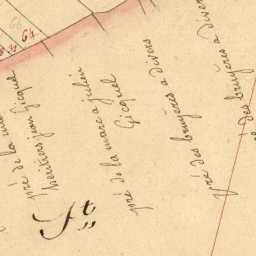 64
pré de la
héritiers jean Gicquel
pré de la mare a julien
Gicquel
pré des bruyeres a divers
des bruyeres a divers
St